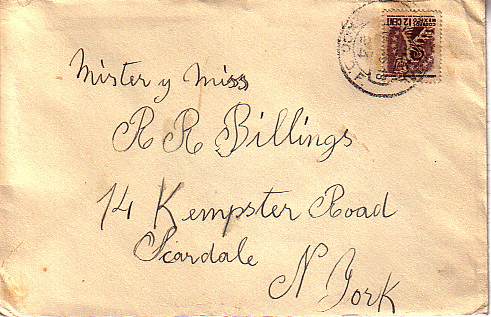 Mister y Miss
R R Billings
14 Kempster Road
Scardale
N York
12 CENT